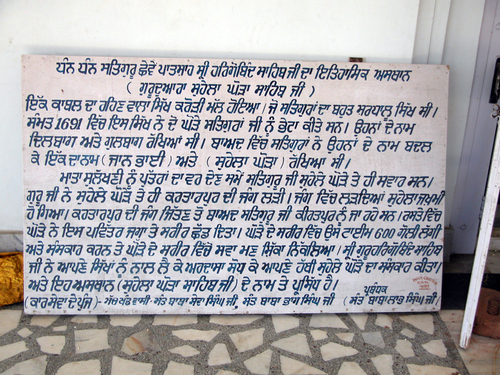 ਧੰਨ ਧੰਨ ਸਤਿਗੁਰੂ ਛੇਵੇਂ ਪਾਤਸ਼ਾਹ ਸ੍ਰੀ ਹਰਿਗੋਬਿੰਦ ਸਾਹਿਬ ਜੀ ਦਾ ਇਤਿਹਾਸਿਕ ਅਸਥਾਨ
( ਗੁਰਦੁਆਰਾ ਸੁਹੇਲਾ ਘੋੜਾ ਸਾਹਿਬ ਜੀ )
ਇੱਕ ਕਾਬਲ ਦਾ ਰਹਿਣ ਵਾਲਾ ਸਿੱਖ ਕਰੋੜੀ ਮੱਲ ਹੋਇਆ। ਜੋ ਸਤਿਗੁਰਾਂ ਦਾ ਬਹੁਤ ਸ਼ਰਧਾਲੂ ਸਿੱਖ ਸੀ।
ਸੰਮਤ 1691 ਵਿੱਚ ਇਸ ਸਿੱਖ ਨੇ ਦੋ ਘੋੜੇ ਸਤਿਗੁਰਾਂ ਜੀ ਨੂੰ ਭੇਟਾ ਕੀਤੇ ਸਨ। ਉਹਨਾਂ ਦੇ ਨਾਮ
ਦਿਲਬਾਗ ਅਤੇ ਗੁਲਬਾਗ ਰੱਖਿਆ ਸੀ। ਬਾਅਦ ਵਿੱਚ ਸਤਿਗੁਰਾਂ ਨੇ ਉਹਨਾਂ ਦੇ ਨਾਮ ਬਦਲ
ਕੇ ਇੱਕ ਦਾ ਨਾਮ (ਜਾਨ ਭਾਈ) ਅਤੇ (ਸੁਹੇਲਾ ਘੋੜਾ) ਰੱਖਿਆ ਸੀ।
ਮਾਤਾ ਸੁਲੱਖਣੀ ਨੂੰ ਪੁਤਰਾਂ ਦਾ ਵਰ ਦੇਣ ਸਮੇਂ ਸਤਿਗੁਰੂ ਜੀ ਸੁਹੇਲੇ ਘੋੜੇ ਤੇ ਹੀ ਸਵਾਰ ਸਨ।
ਗੁਰੂ ਜੀ ਨੇ ਸੁਹੇਲੇ ਘੋੜੇ ਤੇ ਹੀ ਕਰਤਾਰਪੁਰ ਦੀ ਜੰਗ ਲੜੀ। ਜੰਗ ਵਿੱਚ ਲੜਦਿਆ ਸੁਹੇਲਾ ਜਖਮੀ
ਹੋ ਗਿਆ। ਕਰਤਾਰਪੁਰ ਦੀ ਜੰਗ ਜਿੱਤਣ ਤੋਂ ਬਾਅਦ ਸਤਿਗੁਰੂ ਜੀ ਕੀਰਤਪੁਰ ਨੂੰ ਜਾ ਰਹੇ ਸਨ। ਰਸਤੇ ਵਿੱਚ
ਘੋੜੇ ਨੇ ਇਸ ਪਵਿੱਤਰ ਜਗ੍ਹਾ ਤੇ ਸਰੀਰ ਛੱਡ ਦਿਤਾ। ਘੋੜੇ ਦੇ ਸਰੀਰ ਵਿੱਚੋਂ ਉਸ ਟਾਈਮ 600 ਗੋਲੀ ਲੱਗੀ
ਅਤੇ ਸੰਸਕਾਰ ਕਰਨ ਤੇ ਘੋੜੇ ਦੇ ਸਰੀਰ ਵਿੱਚੋਂ ਸਵਾ ਮਣ ਸਿੱਕਾ ਨਿਕਲਿਆ। ਸ੍ਰੀ ਗੁਰੂ ਹਰਿਗੋਬਿੰਦ ਸਾਹਿਬ
ਜੀ ਨੇ ਆਪਣੇ ਸਿੱਖਾਂ ਨੂੰ ਨਾਲ ਲੈ ਕੇ ਅਰਦਾਸਾ ਸੋਧ ਕੇ ਆਪਣੇ ਹੱਥੀ ਸੁਹੇਲੇ ਘੋੜੇ ਦਾ ਸੰਸਕਾਰ ਕੀਤਾ।
ਅਤੇ ਇਹ ਅਸਥਾਨ (ਸੁਹੇਲਾ ਘੋੜਾ ਸਾਹਿਬ ਜੀ) ਦੇ ਨਾਮ ਤੇ ਪ੍ਰਸਿੱਧ ਹੈ। ਪ੍ਰਬੰਧਕ
(ਕਾਰ ਸੇਵਾ ਦੇ ਪੁੰਜ) ਸੱਚ ਖੰਡ ਵਾਸੀ- ਸੰਤ ਬਾਬਾ ਸੇਵਾ ਸਿੰਘ ਜੀ, ਸੰਤ ਬਾਬਾ ਭਾਗ ਸਿੰਘ ਜੀ (ਸੰਤ ਬਾਬਾ ਲਾਭ ਸਿੰਘ ਜੀ)